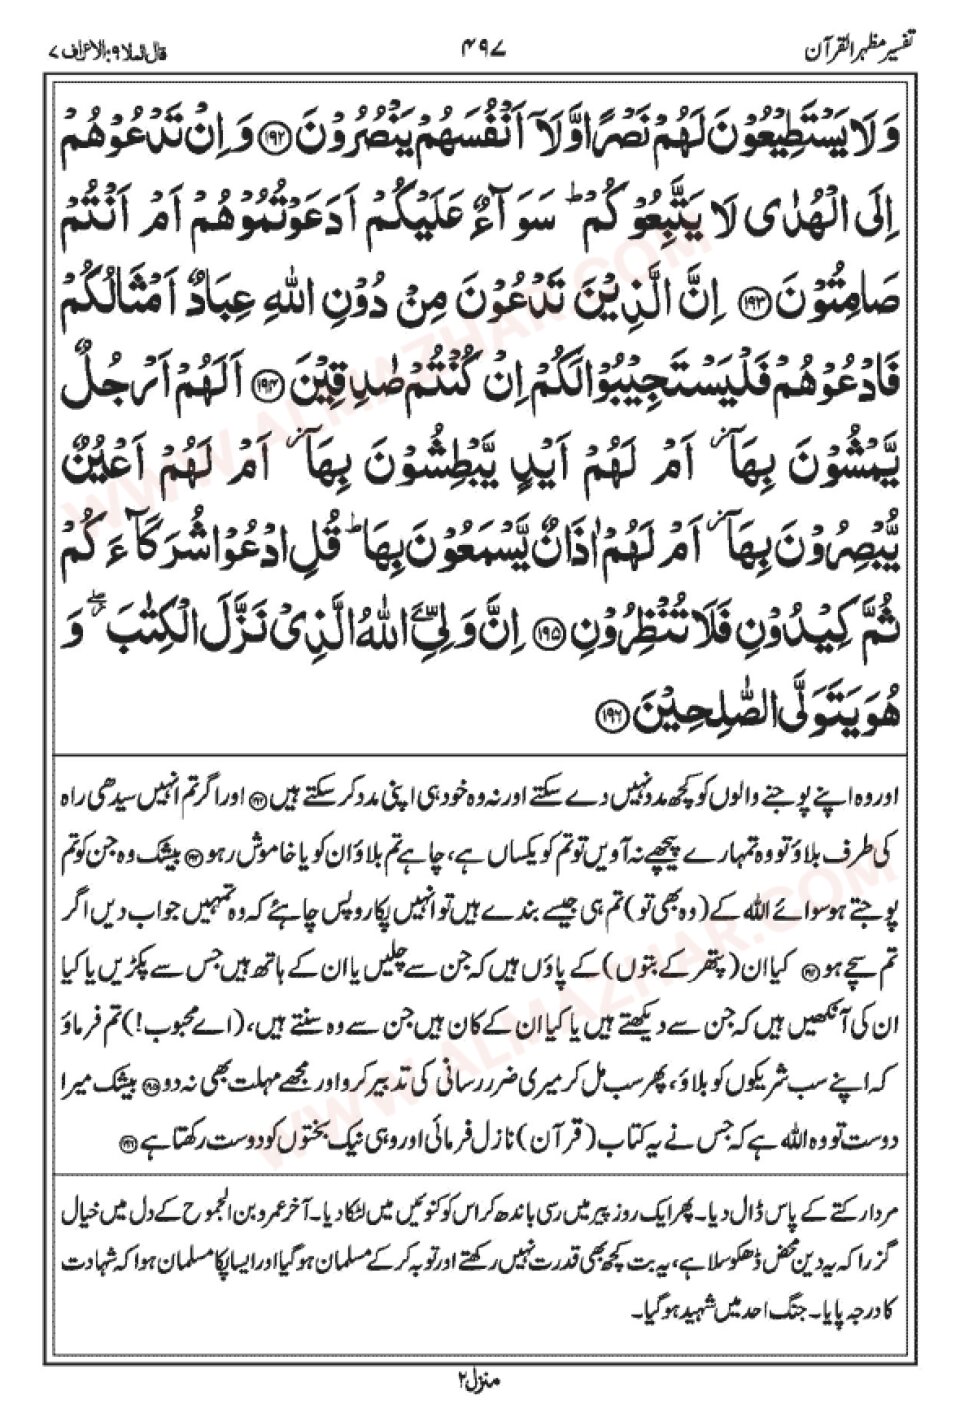 تفسیر مظہر القرآن
۴۹۷
قال الملا ۹: الاعراف ۷
وَلَا يَسْتَطِيْعُوْنَ لَهُمْ نَصْرًا وَّلَاۤ اَنْفُسَهُمْ يَنْصُرُوْنَ ﴿۱۹۲﴾ وَ اِنْ تَدْعُوْهُمْ
اِلَى الْهُدٰى لَا يَتَّبِعُوْكُمْ ؕ سَوَآءٌ عَلَيْكُمْ اَدَعَوْتُمُوْهُمْ اَمْ اَنْتُمْ
صَامِتُوْنَ ﴿۱۹۳﴾ اِنَّ الَّذِيْنَ تَدْعُوْنَ مِنْ دُوْنِ اللّٰهِ عِبَادٌ اَمْثَالُكُمْ
فَادْعُوْهُمْ فَلْيَسْتَجِيْبُوْا لَكُمْ اِنْ كُنْتُمْ صٰدِقِيْنَ ﴿۱۹۴﴾ اَلَهُمْ اَرْجُلٌ
يَّمْشُوْنَ بِهَاۤ ؗ اَمْ لَهُمْ اَيْدٍ يَّبْطِشُوْنَ بِهَاۤ ؗ اَمْ لَهُمْ اَعْيُنٌ
يُّبْصِرُوْنَ بِهَاۤ ؗ اَمْ لَهُمْ اٰذَانٌ يَّسْمَعُوْنَ بِهَا ؕ قُلِ ادْعُوْا شُرَكَآءَكُمْ
ثُمَّ كِيْدُوْنِ فَلَا تُنْظِرُوْنِ ﴿۱۹۵﴾ اِنَّ وَلِيِّۦَ اللّٰهُ الَّذِىْ نَزَّلَ الْكِتٰبَ ۖ وَ
هُوَ يَتَوَلَّى الصّٰلِحِيْنَ ﴿۱۹۶﴾
اور وہ اپنے پوجنے والوں کو کچھ مدد نہیں دے سکتے اور نہ وہ خود ہی اپنی مدد کر سکتے ہیں ﴿۱۹۲﴾ اور اگر تم انہیں سیدھی راہ
کی طرف بلاؤ تو وہ تمہارے پیچھے نہ آویں تو تم کو یکساں ہے، چاہے تم بلاؤ ان کو یا خاموش رہو ﴿۱۹۳﴾ بیشک وہ جن کو تم
پوجتے ہو سوائے اللہ کے (وہ بھی تو) تم ہی جیسے بندے ہیں تو انہیں پکارو پس چاہئے کہ وہ تمہیں جواب دیں اگر
تم سچے ہو ﴿۱۹۴﴾ کیا ان (پتھر کے بتوں) کے پاؤں ہیں کہ جن سے چلیں یا ان کے ہاتھ ہیں جس سے پکڑیں یا کیا
ان کی آنکھیں ہیں کہ جن سے دیکھتے ہیں یا کیا ان کے کان ہیں جن سے وہ سنتے ہیں، (اے محبوب!) تم فرماؤ
کہ اپنے سب شریکوں کو بلاؤ، پھر سب مل کر میری ضرر رسانی کی تدبیر کرو اور مجھے مہلت بھی نہ دو ﴿۱۹۵﴾ بیشک میرا
دوست تو وہ اللہ ہے کہ جس نے یہ کتاب (قرآن) نازل فرمائی اور وہی نیک بختوں کو دوست رکھتا ہے ﴿۱۹۶﴾
مردار کتے کے پاس ڈال دیا۔ پھر ایک روز پیر میں رسی باندھ کر اس کو کنوئیں میں لٹکا دیا۔ آخر عمرو بن الجموح کے دل میں خیال
گزرا کہ یہ دین محض ڈھکوسلا ہے، یہ بت کچھ بھی قدرت نہیں رکھتے اور توبہ کر کے مسلمان ہو گیا اور ایسا پکا مسلمان ہوا کہ شہادت
کا درجہ پایا۔ جنگ احد میں شہید ہو گیا۔
منزل ۲
WWW.ALMAZHAR.COM
WWW.ALMAZHAR.COM